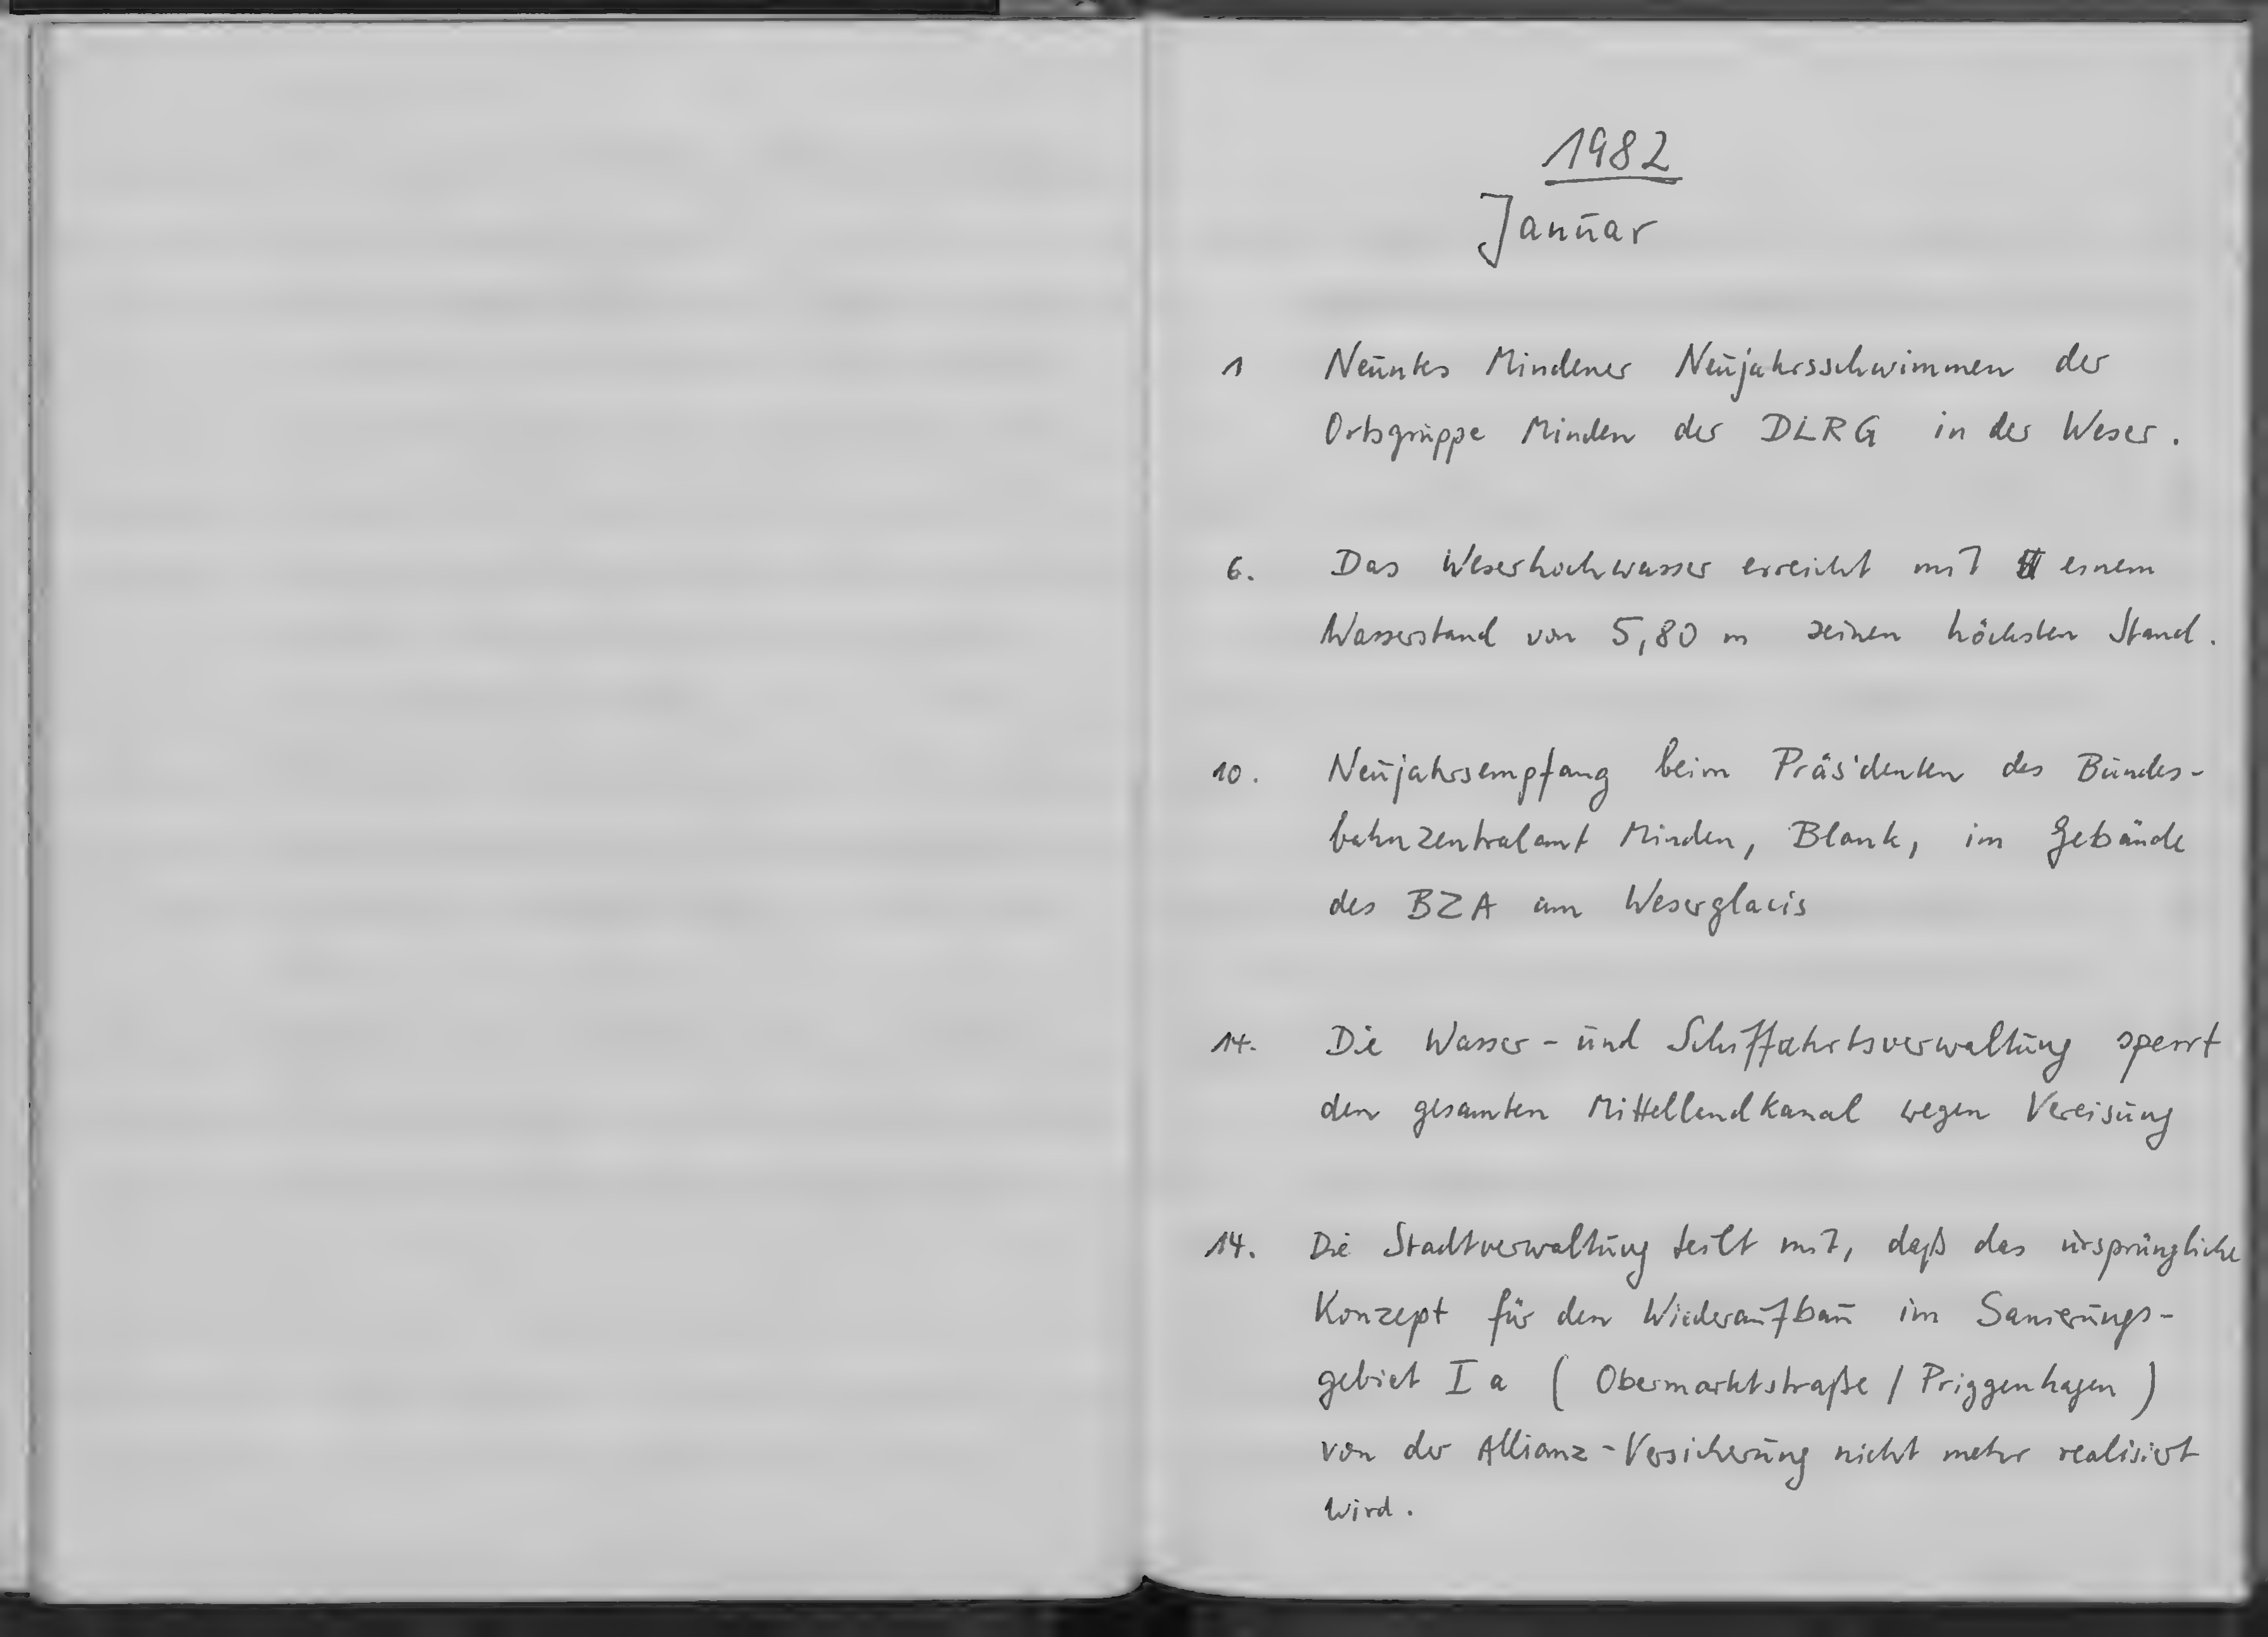 1982
Januar
1 Neuntes Mindener Neujahrsschwimmen der
Ortsgruppe Minden der DLRG in der Weser.
6. Das Weserhochwasser erreicht mit einem
Wasserstand von 5,80 m seinen höchsten Stand.
10. Neujahrsempfang beim Präsidenten des Bundes-
bahnzentralamt Minden, Blank, im Gebäude
des BZA am Weserglacis
14. Die Wasser- und Schiffahrtsverwaltung sperrt
den gesamten Mittellandkanal wegen Vereisung
14. Die Stadtverwaltung teilt mit, daß das ursprüngliche
Konzept für den Wiederaufbau im Sanierungs-
gebiet I a ( Obermarktstraße / Priggenhagen )
von der Allianz-Versicherung nicht mehr realisiert
wird.